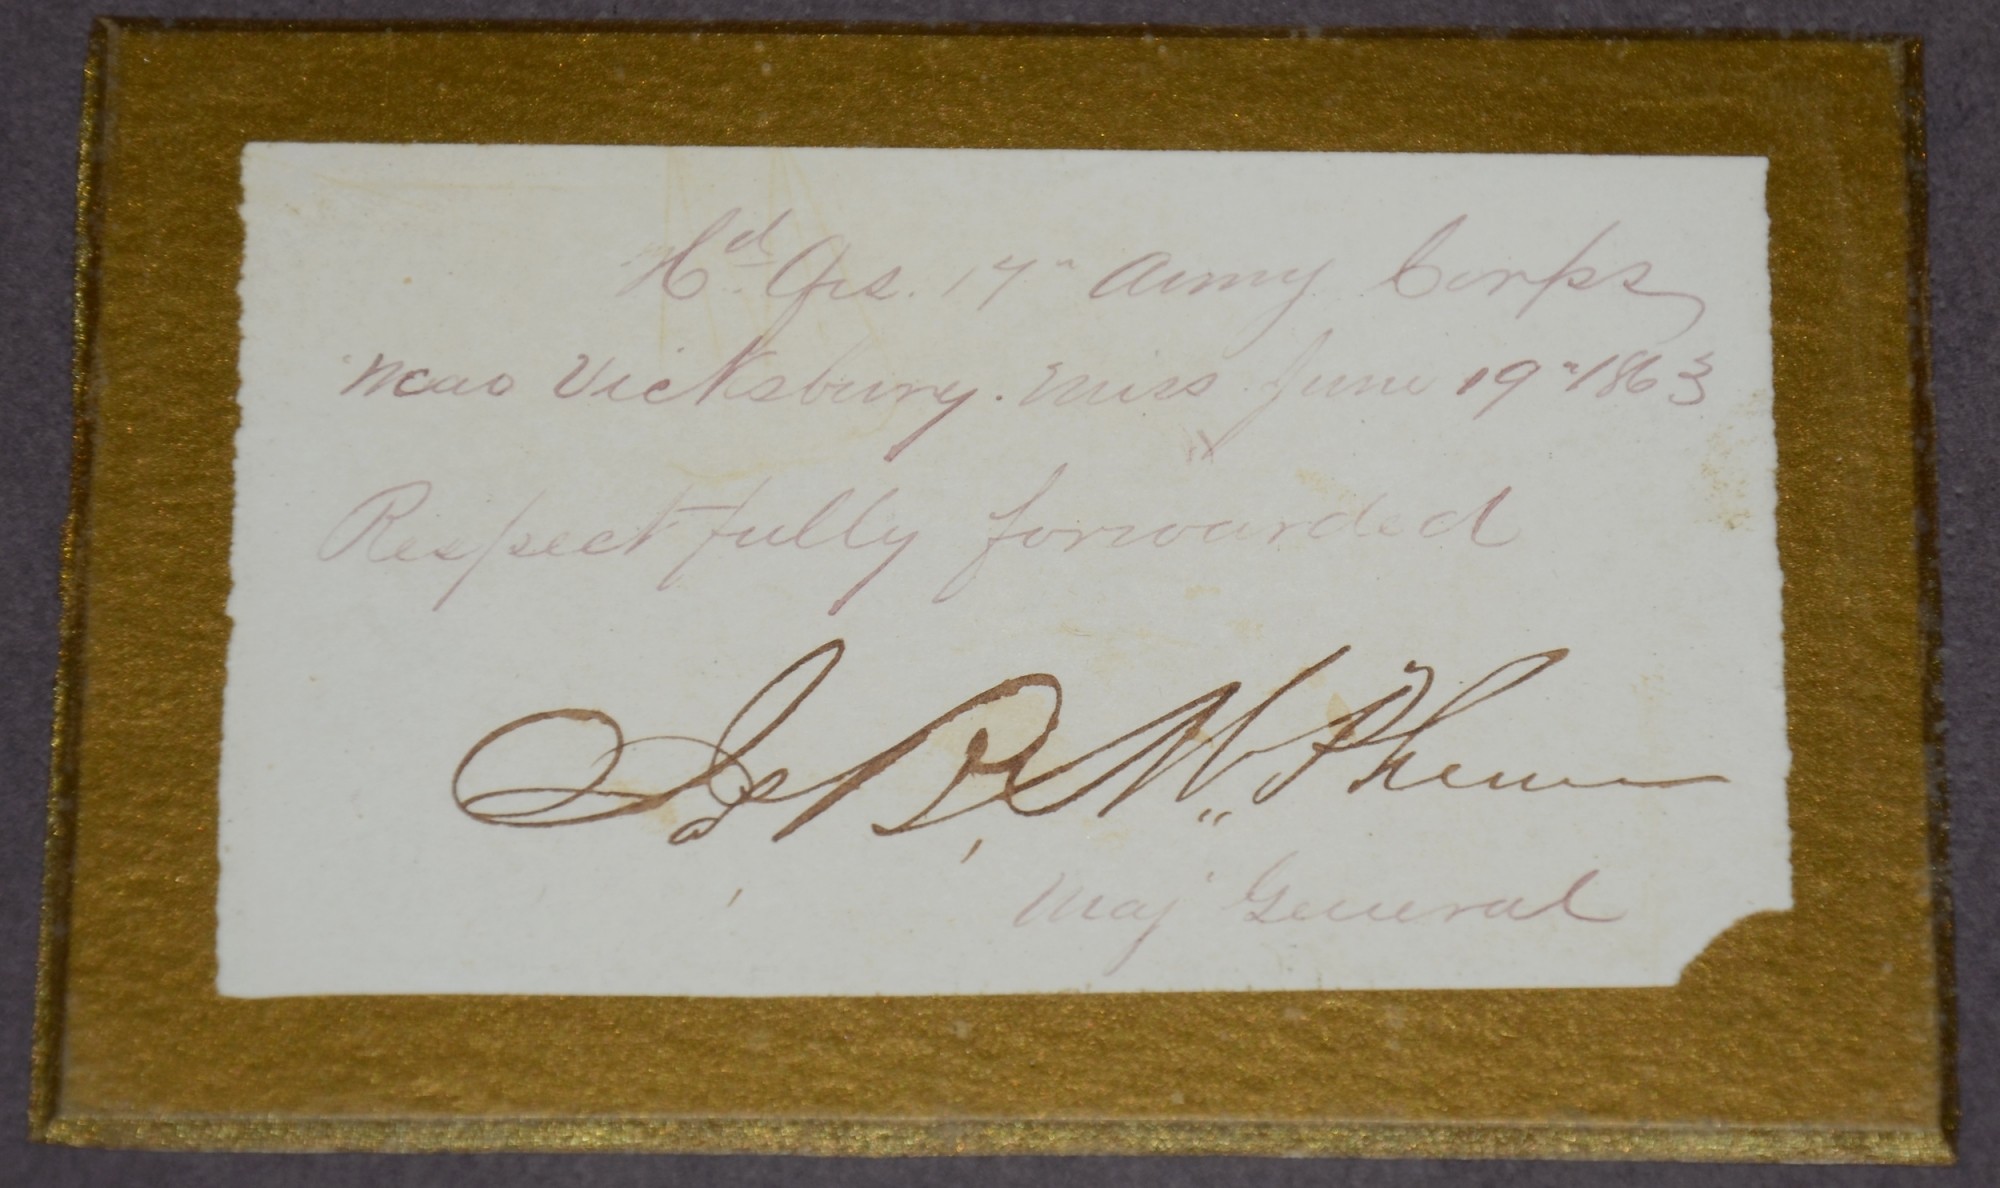 Hd. Qrs. 17" Army Corps
Near Vicksburg. Miss June 19" 1863
Respectfully forwarded
Jas. B. McPherson
Maj General